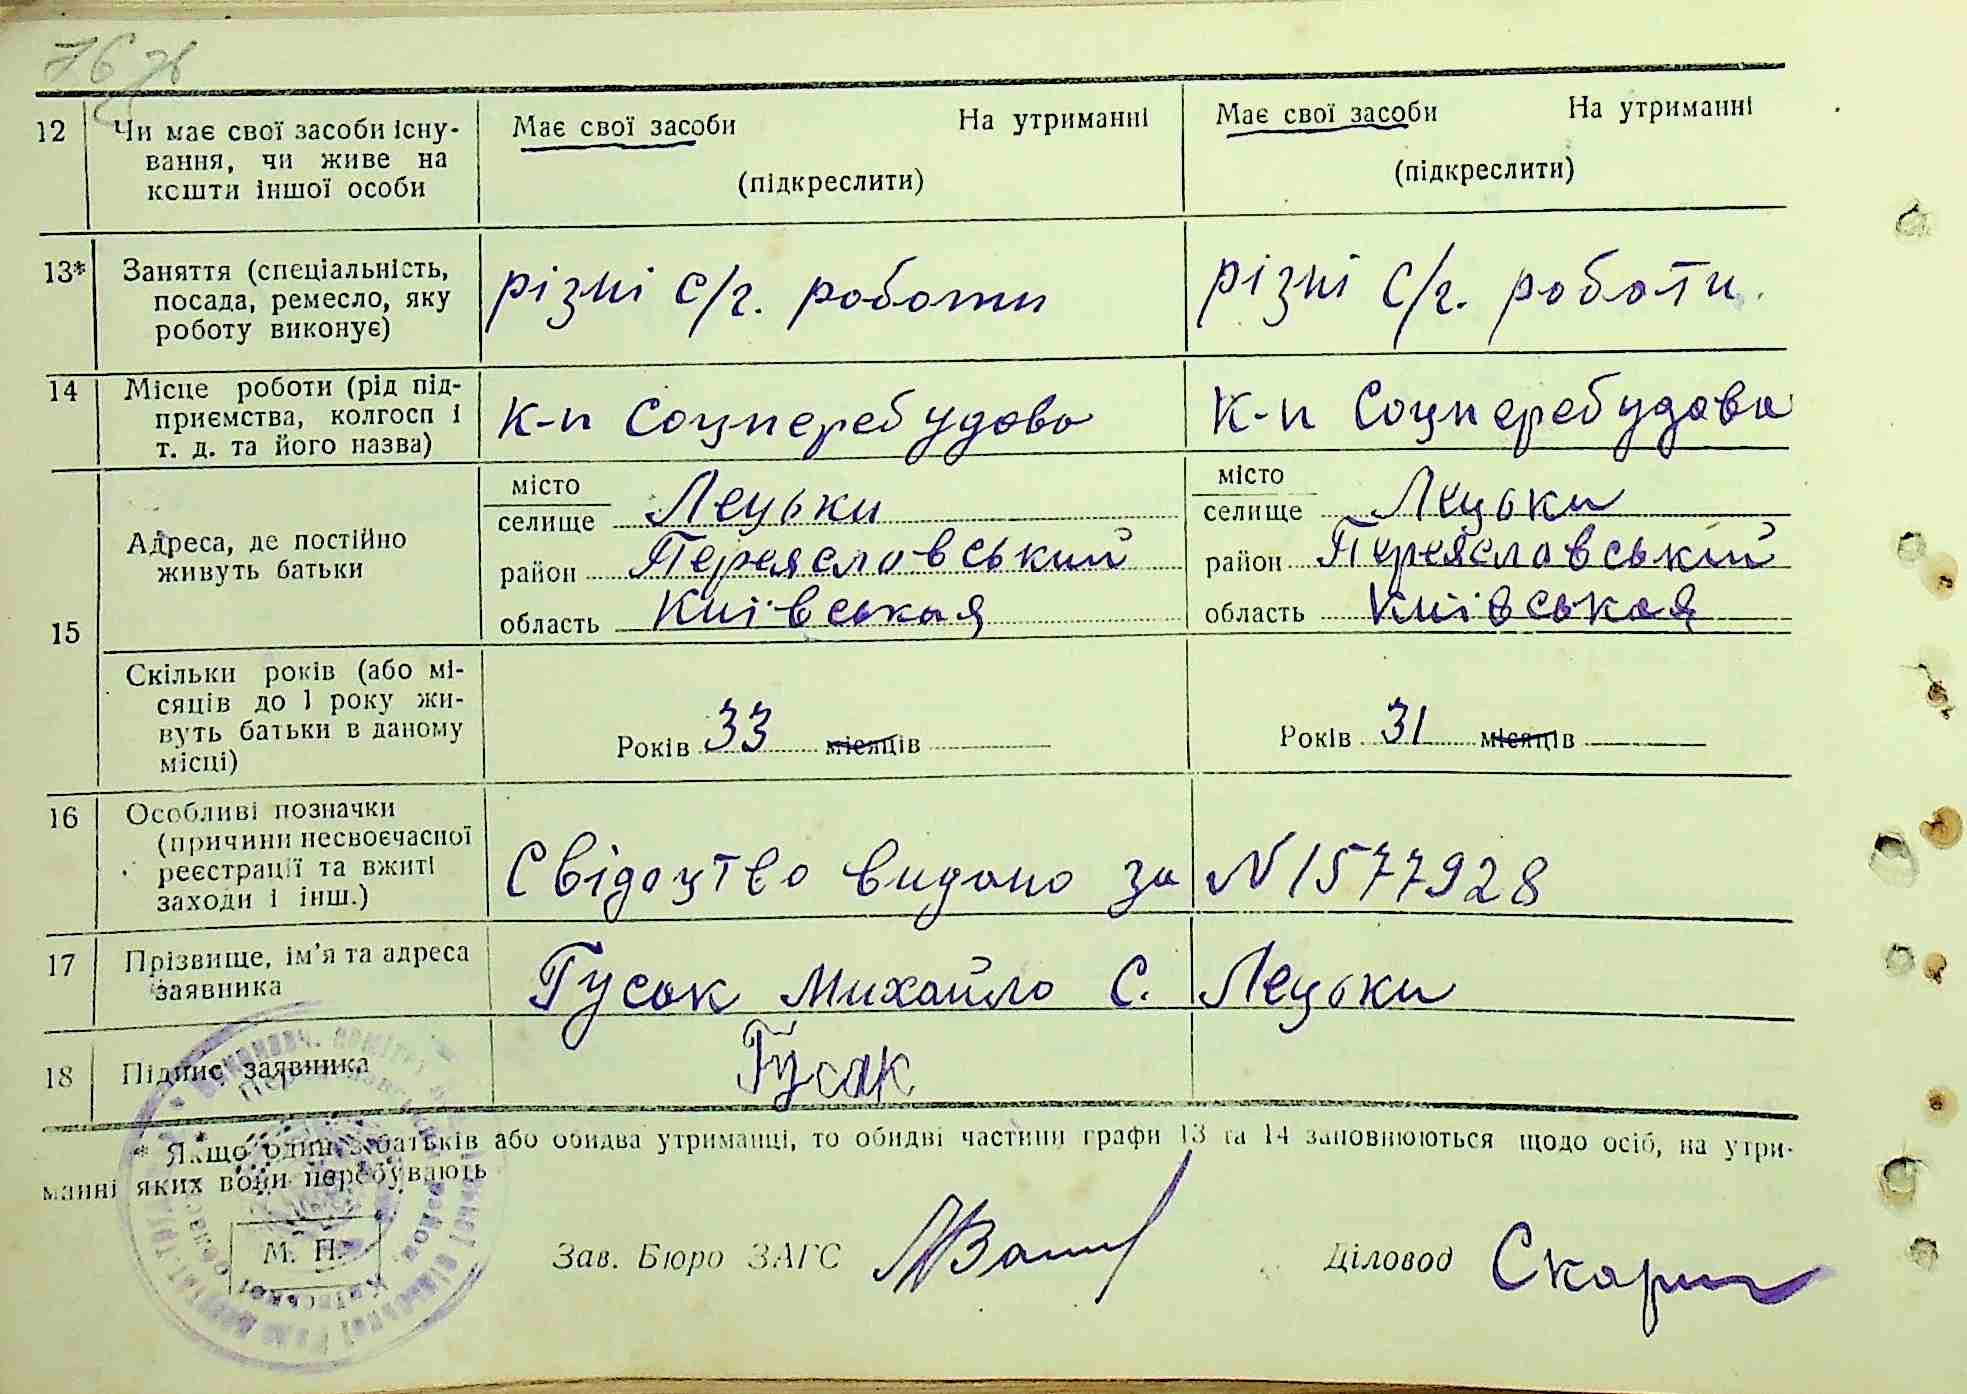 76
12 Чи має свої засоби існу- Має свої засоби На утриманні Має свої засоби На утриманні
вання, чи живе на
кошти іншої особи (підкреслити) (підкреслити)
13* Заняття (спеціальність, різні с/г. роботи різні с/г. роботи.
посада, ремесло, яку
роботу виконує)
14 Місце роботи (рід під- к-п Соцперебудова к-п Соцперебудова
приємства, колгосп і
т. д. та його назва)
15 Адреса, де постійно
живуть батьки
місто
селище Лецьки
район Переяславський
область Київська
місто
селище Лецьки
район Переяславський
область Київська
Скільки років (або мі-
сяців до 1 року жи-
вуть батьки в даному
місці)
Років 33 місяців Років 31 місяців
16 Особливі позначки
(причини несвоєчасної
реєстрації та вжиті
заходи і інш.)
Свідоцтво видано за N 1577928
17 Прізвище, ім'я та адреса
заявника
Гусак Михайло С. Лецьки
18 Підпис заявника Гусак
* Якщо один з батьків або обидва утриманці, то обидві частини графи 13 та 14 заповнюються щодо осіб, на утри-
манні яких вони перебувають
М. П. Зав. Бюро ЗАГС Діловод